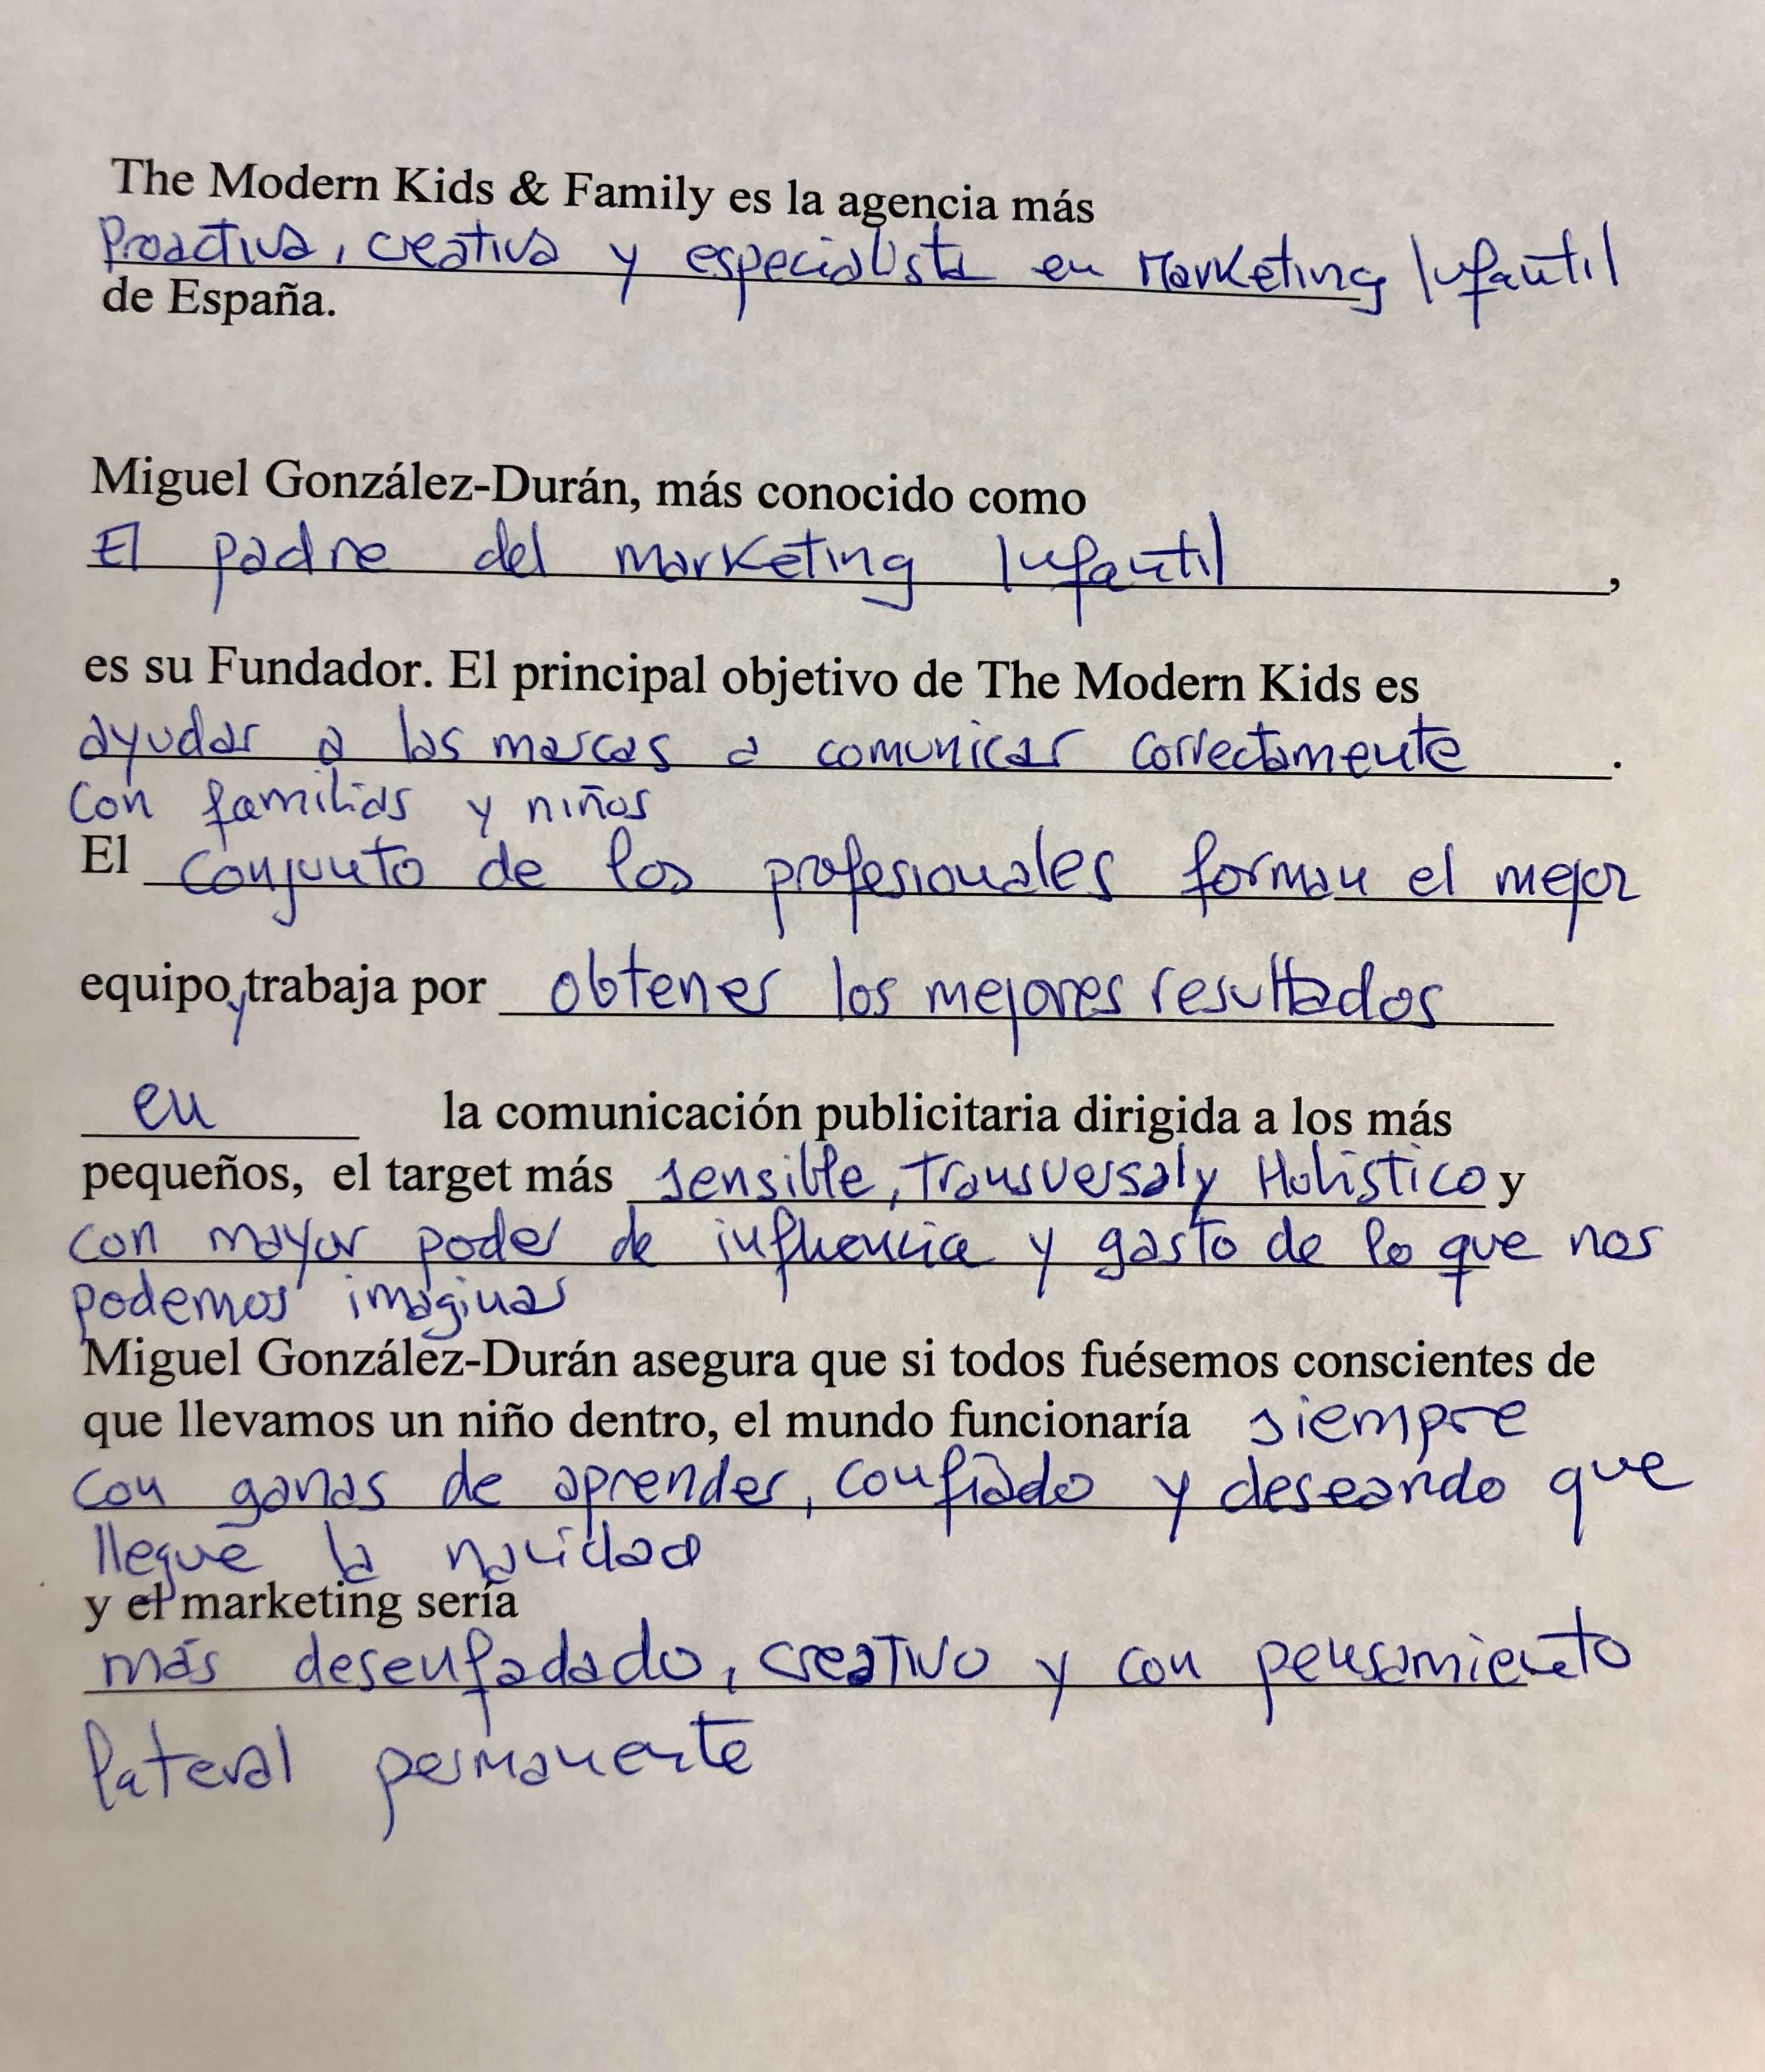 The Modern Kids & Family es la agencia más
Proactiva, creativa y especialista en Marketing Infantil
de España.
Miguel González-Durán, más conocido como
El padre del marketing Infantil ,
es su Fundador. El principal objetivo de The Modern Kids es
ayudar a las marcas a comunicar correctamente .
con familias y niños
El conjunto de los profesionales forman el mejor
equipo y trabaja por obtener los mejores resultados
en la comunicación publicitaria dirigida a los más
pequeños, el target más sensible, Transversal y Holístico y
con mayor poder de influencia y gasto de lo que nos
podemos imaginar
Miguel González-Durán asegura que si todos fuésemos conscientes de
que llevamos un niño dentro, el mundo funcionaría siempre
con ganas de aprender, confiado y deseando que
llegue la navidad
y el marketing sería
más desenfadado, creativo y con pensamiento
lateral permanente